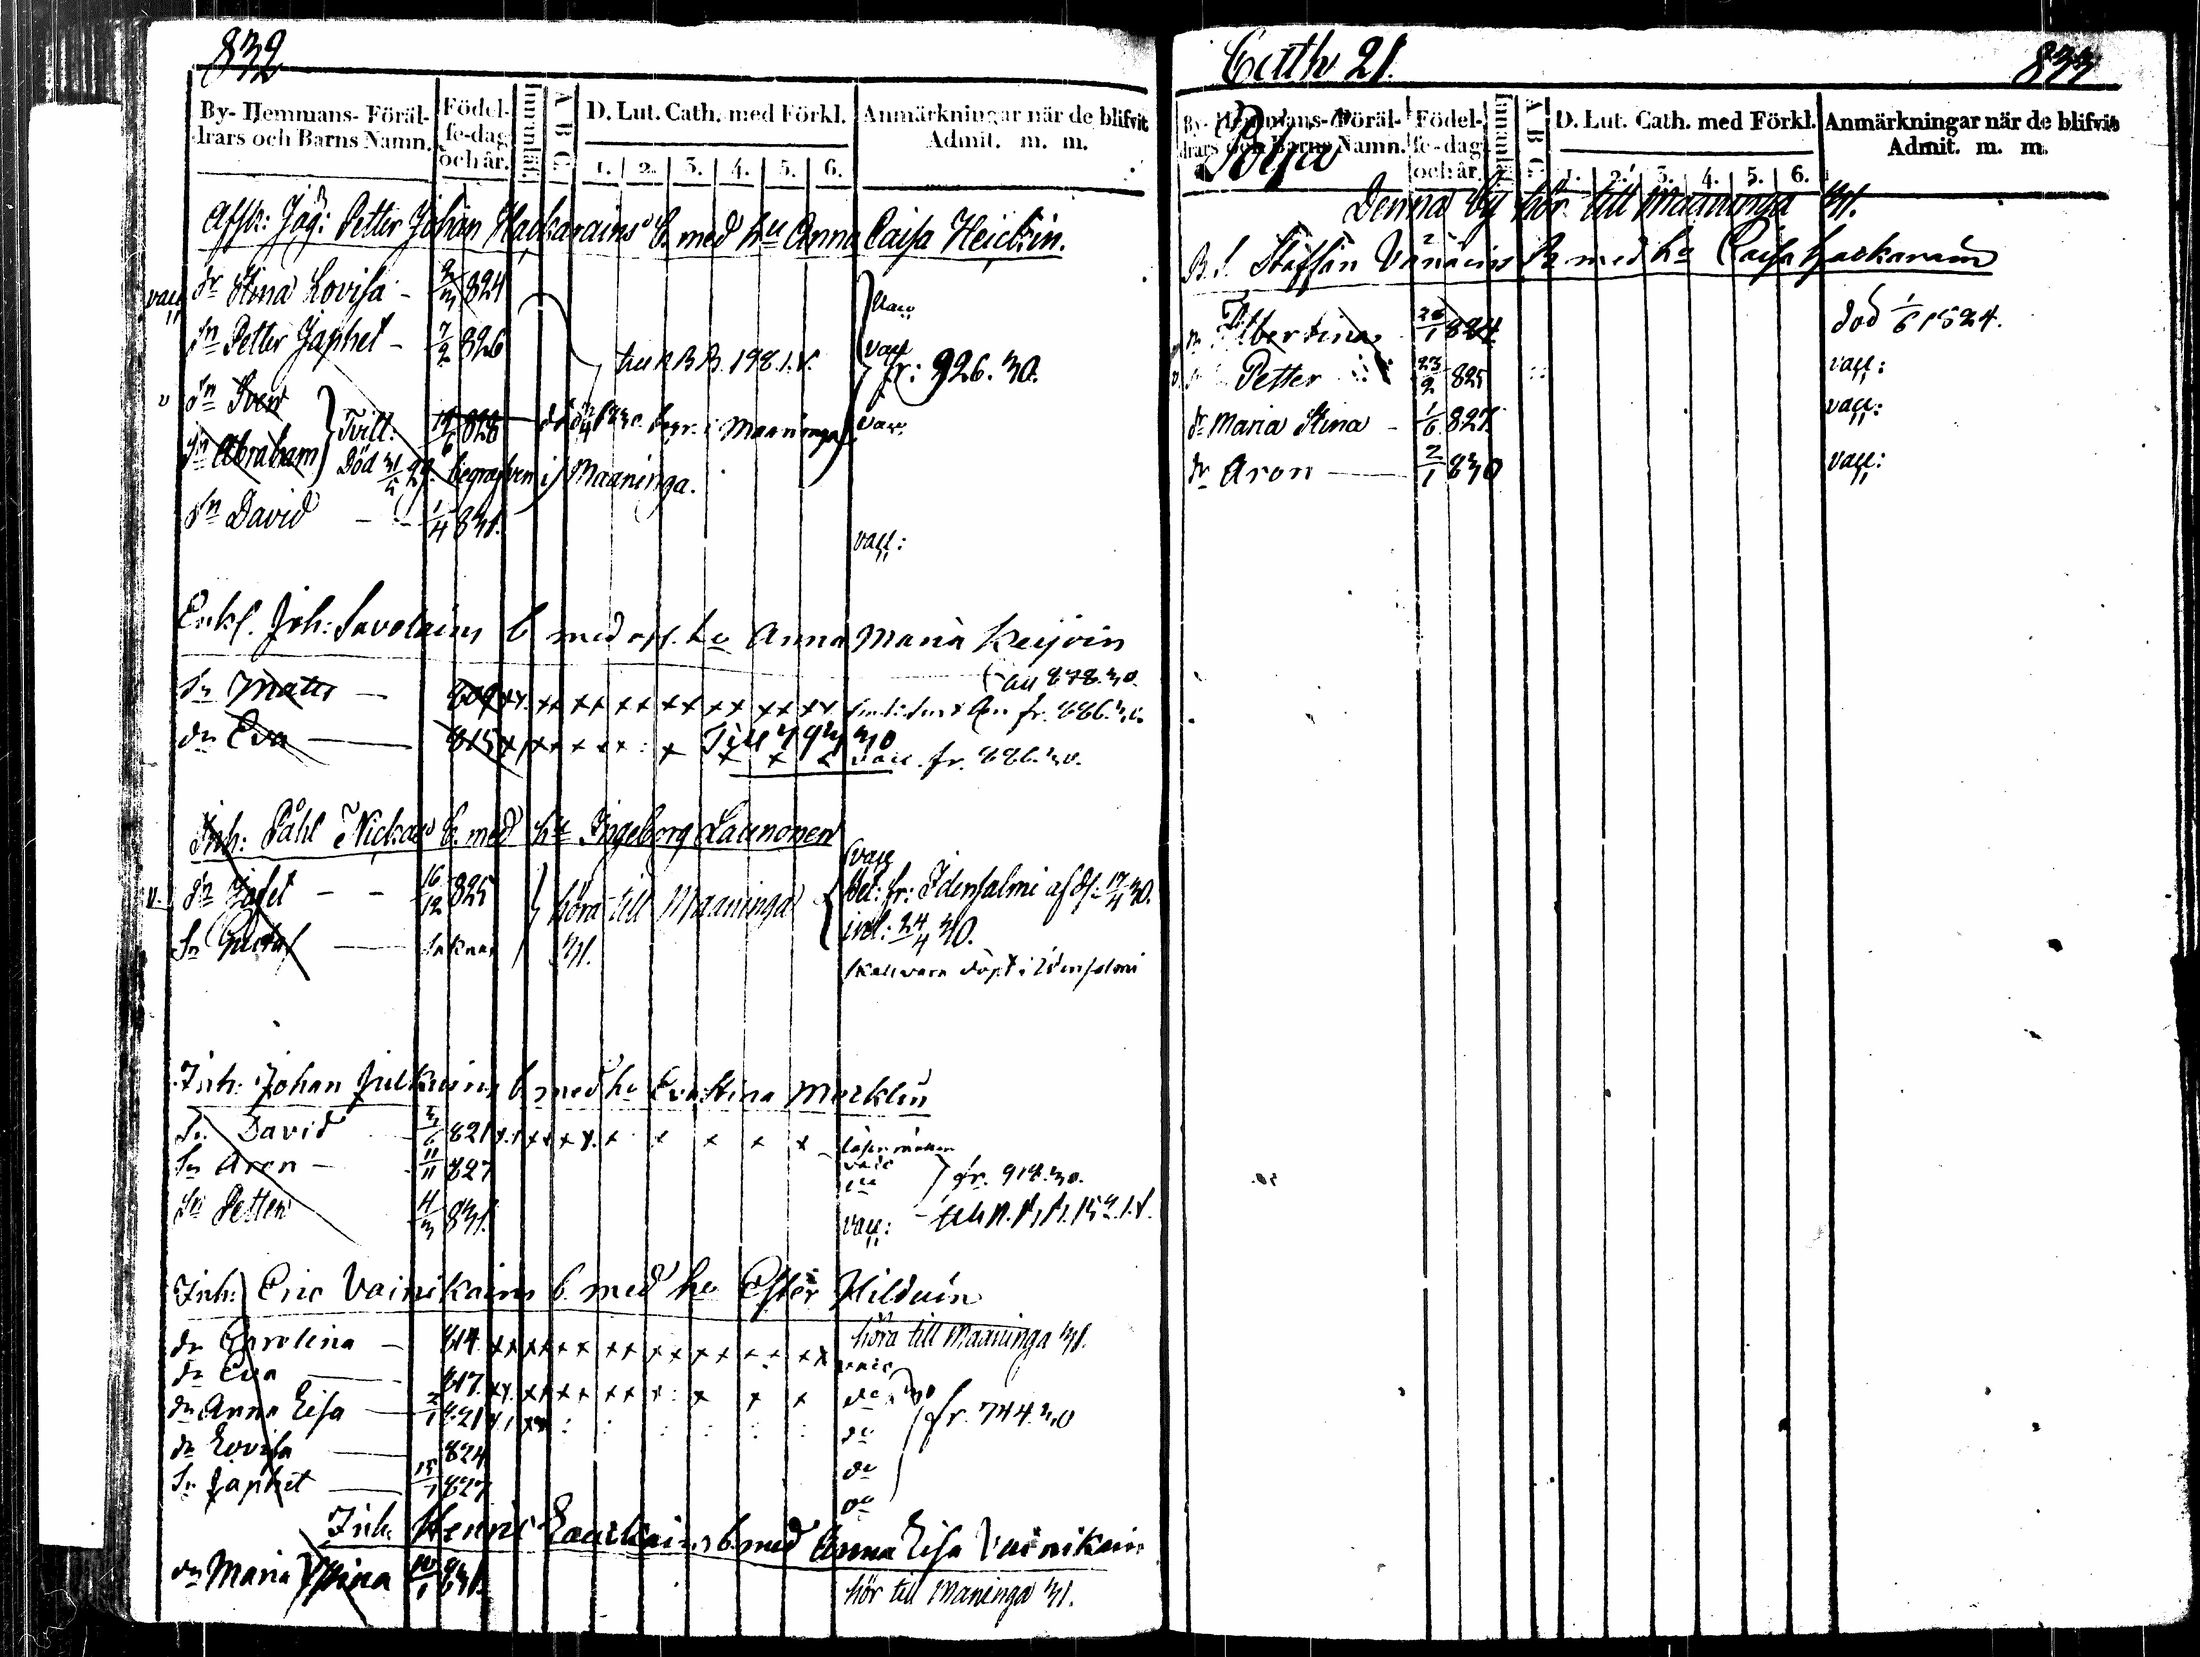 832
By- Hemmans- Föräl-
drars och Barns Namn.
Födel-
se-dag
och år.
Innanläs.
A B C
D. Lut. Cath. med Förkl.
1. 2. 3. 4. 5. 6.
Anmärkningar när de blifvit
Admit. m. m.
Afsk: Jäg: Petter Johan Hackarains b. med hu Anna Caisa Heickin.
vacc dr Stina Lovisa - 2/3 824 vacc
sn Petter Japhet - 7/2 826 till N.B.B. 198.1.S. vacc fr: 926.30.
v sn Sven } Tvill: 19/6 828 död 1830. begr. i Maaninga vacc
sn Abraham } Död 31/5 29. begrafven i Maaninga.
sn David - - 1/4 831. vacc:
Enkl. Joh: Savolains b. med afl. hu Anna Maria Keijoin
till 878.30.
sn Matts - 809 x x x x x x x x x x x x x x fr. 886.30.
dr Eva - 815 x x x x x x : x Till 793 30
x x x vacc. fr. 886.30.
Inh: Påhl Nickar b. med hu Ingeborg Launonen
v. sn Jafet - - 16/12 825 } höra till Maaninga { vacc
bet: fr: Idensalmi af d: 17/4 30.
inl: 24/4 30.
sn Gustaf - saknas 31.
skall vara döpt i Idensalmi
Inh. Johan Julkuins b. med hu Eva Stina Mörklin
sn David 3/6 821 x x x x x x x x x x x
sn Aron - 11/11 827 vacc } fr. 918.30.
sn Petter 4/3 831. vacc: - till N.B.B. 152.1.S.
Inh: Eric Vainikains b. med hu Ester Hilduin
höra till Maaninga 31.
dr Carolina - 814 x x x x x x x x x x x x x x x x vacc
dr Eva - 817. x x x x x x x x x : x x x do
dr Anna Lisa - 2/1 821 x x x x : : : : : : do } fr. 744.30
dr Lovisa - 824 do
sn Japhet - 15/1 827 do
Inh. Henric Laurikains b. med Anna Lisa Vainikain
dr Maria Stina 10/1 831. hör till Maninga 31.
Cath 21.
833
By- Hemmans- Föräl-
drars och Barns Namn.
Pölja
Födel-
se-dag
och år.
Innanläs.
A B C
D. Lut. Cath. med Förkl.
1. 2. 3. 4. 5. 6.
Anmärkningar när de blifvit
Admit. m. m.
Denna by hör till Maaninga 31.
B.S. Staffan Vänäins b. med hu Caisa Hackarain
dr Albertina 26/1 824. död 1/6 1824.
v. sn Petter 23/2 825 vacc:
dr Maria Stina - 1/6 827. vacc:
sn Aron - 2/1 830 vacc: